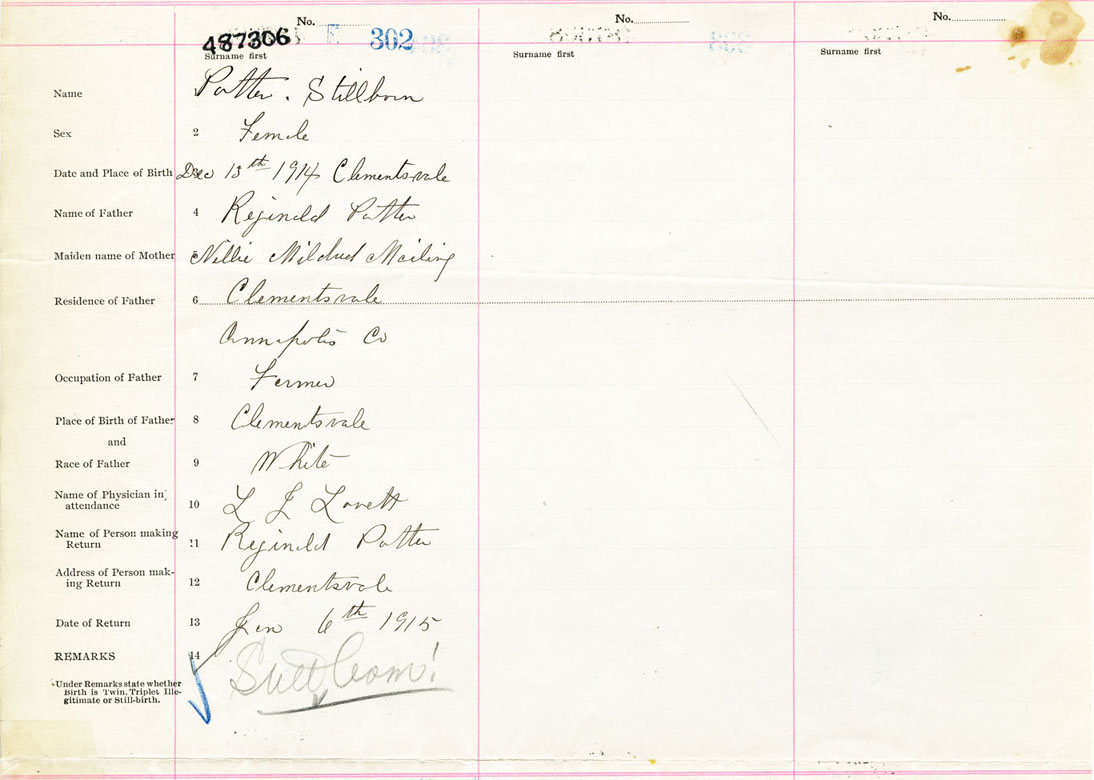 No. No. No.
487306 E 302
Surname first Surname first Surname first
Name 1 Potter. Stillborn
Sex 2 Female
Date and Place of Birth 3 Dec 13th 1914 Clementsvale
Name of Father 4 Reginald Potter
Maiden name of Mother 5 Nellie Mildred Mailing
Residence of Father 6 Clementsvale
Annapolis Co
Occupation of Father 7 Farmer
Place of Birth of Father 8 Clementsvale
and
Race of Father 9 White
Name of Physician in attendance 10 L J Lovett
Name of Person making Return 11 Reginald Potter
Address of Person making Return 12 Clementsvale
Date of Return 13 Jan 6th 1915
REMARKS 14 Stillborn!
Under Remarks state whether
Birth is Twin, Triplet Ille-
gitimate or Still-birth.